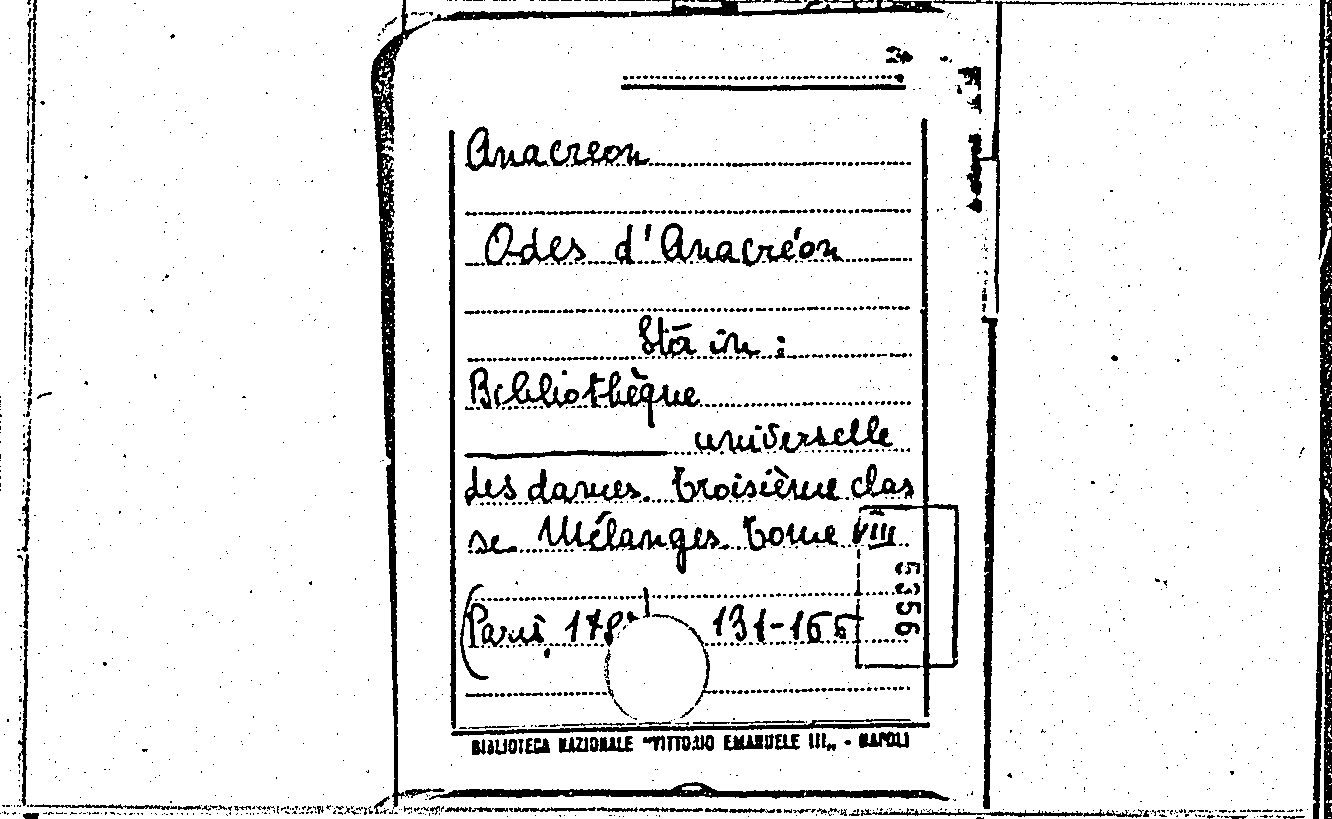 Anacreon
Odes d'Anacréon
Sta in :
Bibliothèque
universelle
des dames. Troisième clas
se. Mélanges. Tome VIII
(Paris, 178 131-166
5356
BIBLIOTECA NAZIONALE "VITTORIO EMANUELE III„ - NAPOLI